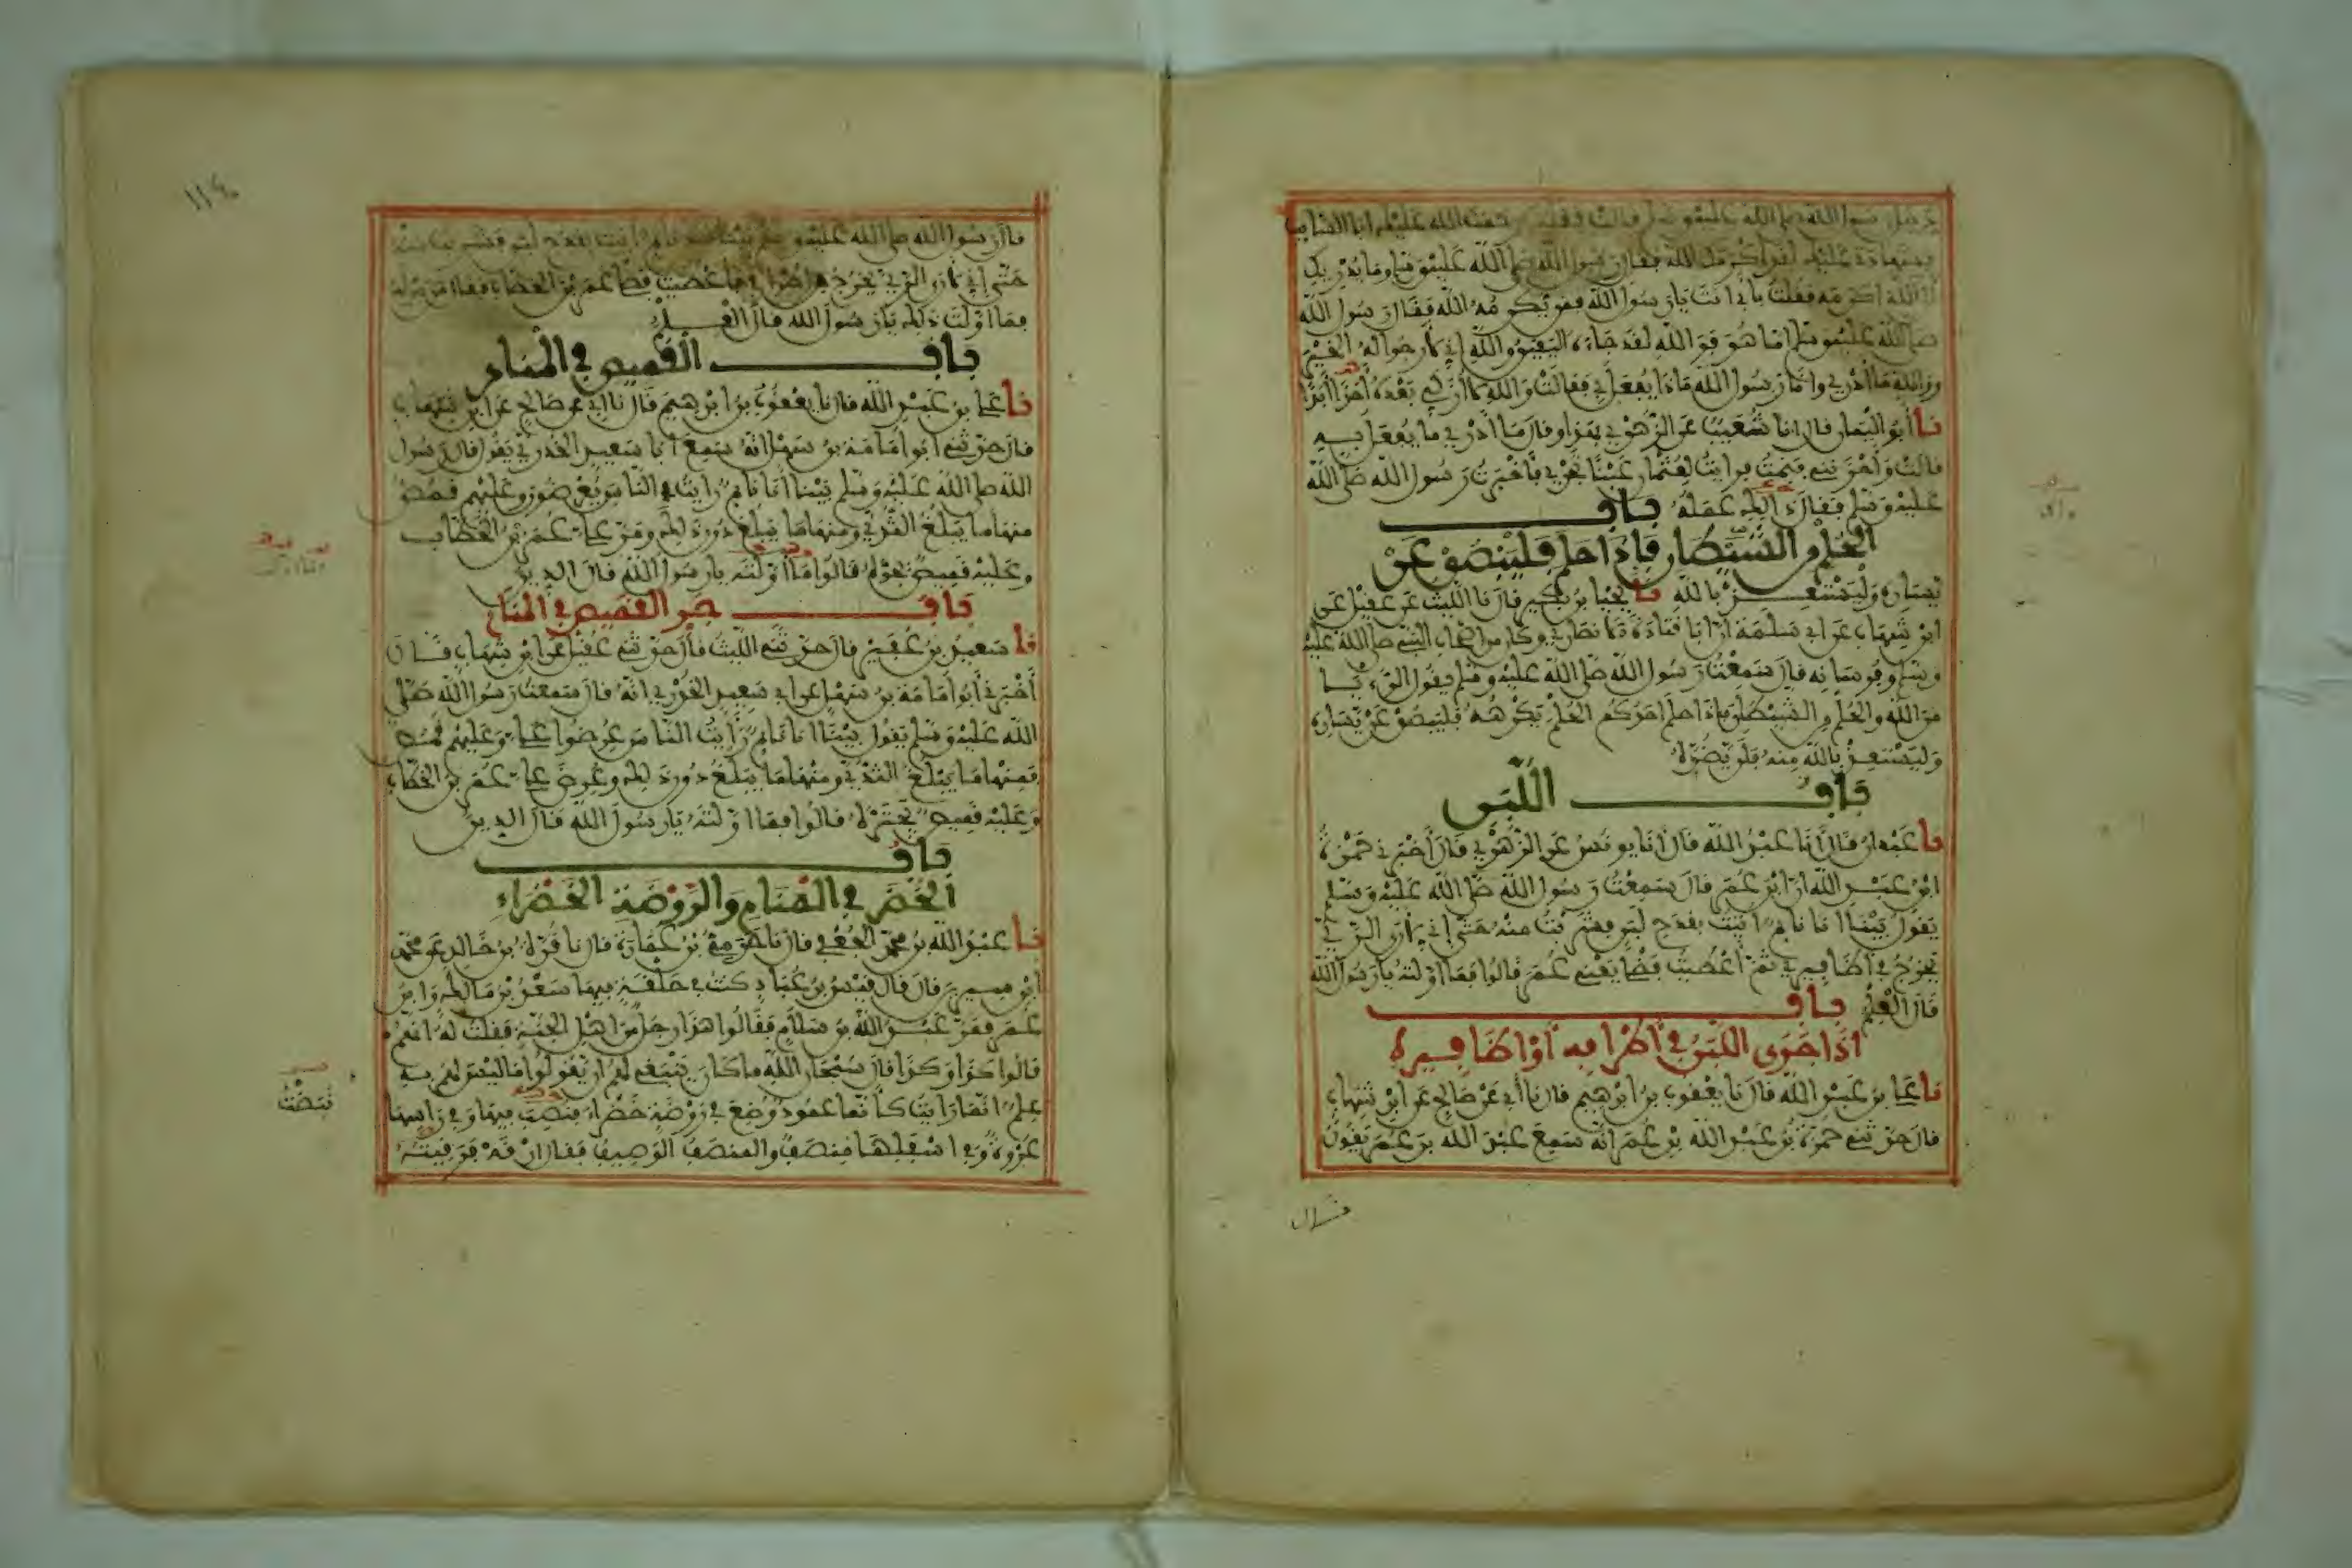 رسول الله صلى الله عليه وسلم قالت فقلت رحمة الله عليك ابا السايب
فشهادتي عليك لقد اكرمك الله فقال رسول الله صلى الله عليه وسلم وما يدريك
ان الله اكرمه فقلت بابي انت يا رسول الله فمن يكرمه الله فقال رسول الله
صلى الله عليه وسلم اما هو فو الله لقد جاءه اليقين والله اني لارجوا له الخير
ووالله ما ادري وانا رسول الله ماذا يفعل بي فقالت والله لا ازكي بعده احدا ابدا
نا ابو اليمان قال انا شعيب عن الزهري بهذا وقال ما ادري ما يفعل به
قالت واحزنني فنمت فرايت لعثمان عينا تجري فاخبرت رسول الله صلى الله
عليه وسلم فقال ذلك عمله باب
الحلم من الشيطان فاذا حلم فليبصق عن
يساره وليستعذ بالله نا يحيا بن بكير قال نا الليث عن عقيل عن
ابن شهاب عن ابي سلمة ان ابا قتادة الانصاري وكان من اصحاب النبي صلى الله عليه
وسلم وفرسانه قال سمعت رسول الله صلى الله عليه وسلم يقول الرءيا
من الله والحلم من الشيطان فاذا حلم احدكم الحلم يكرهه فليبصق عن يساره
وليستعذ بالله منه فلن يضره
باب اللبن
نا عبدان قال انا عبد الله قال انا يونس عن الزهري قال اخبرني حمزة
ابن عبد الله ان ابن عمر قال سمعت رسول الله صلى الله عليه وسلم
يقول بينا انا نايم اتيت بقدح لبن فشربت منه حتى اني لارى الري
يخرج في اظافيري ثم اعطيت فضلي يعني عمر قالوا فما اولته يا رسول الله
قال العلم باب
اذا جرى اللبن في اطرافه او اظافيره
نا علي بن عبد الله قال نا يعقوب بن ابرهيم قال نا ابي عن صالح عن ابن شهاب
قال حدثني حمزة بن عبد الله بن عمر انه سمع عبد الله بن عمر يقول
قال
قال رسول الله صلى الله عليه وسلم بينا انا نايم اتيت بقدح لبن فشربت منه
حتى اني لارى الري يخرج من اطرافي فاعطيت فضلي عمر بن الخطاب فقال من حوله
فما اولت ذلك يا رسول الله قال العلم
باب القميص في المنام
نا علي بن عبد الله قال نا يعقوب بن ابرهيم قال نا ابي عن صالح عن ابن شهاب
قال حدثني ابو امامة بن سهل انه سمع ابا سعيد الخدري يقول قال رسول
الله صلى الله عليه وسلم بينما انا نايم رايت الناس يعرضون وعليهم قمص
منها ما يبلغ الثدي ومنها ما يبلغ دون ذلك ومر علي عمر بن الخطاب
وعليه قميص يجره قالوا ما اولته يا رسول الله قال الدين
باب جر القميص في المنام
نا سعيد بن عفير قال حدثني الليث قال حدثني عقيل عن ابن شهاب قال
اخبرني ابو امامة بن سهل عن ابي سعيد الخدري انه قال سمعت رسول الله صلى
الله عليه وسلم يقول بينا انا نايم رايت الناس عرضوا علي وعليهم قمص
فمنها ما يبلغ الثدي ومنها ما يبلغ دون ذلك وعرض علي عمر بن الخطاب
وعليه قميص يجتره قالوا فما اولته يا رسول الله قال الدين
باب
الخضر في المنام والروضة الخضراء
نا عبد الله بن محمد الجعفي قال نا حرمي بن عمارة قال نا قرة بن خالد عن محمد
ابن سيرين قال قال قيس بن عباد كنت في حلقة فيها سعد بن مالك وابن
عمر فمر عبد الله بن سلام فقالوا هذا رجل من اهل الجنة فقلت له انهم
قالوا كذا وكذا قال سبحان الله ما كان ينبغي لهم ان يقولوا ما ليس لهم به
علم انما رايت كانما عمود وضع في روضة خضراء فنصب فيها وفي راسها
عروة وفي اسفلها منصف والمنصف الوصيف فقال ارقه فرقيته